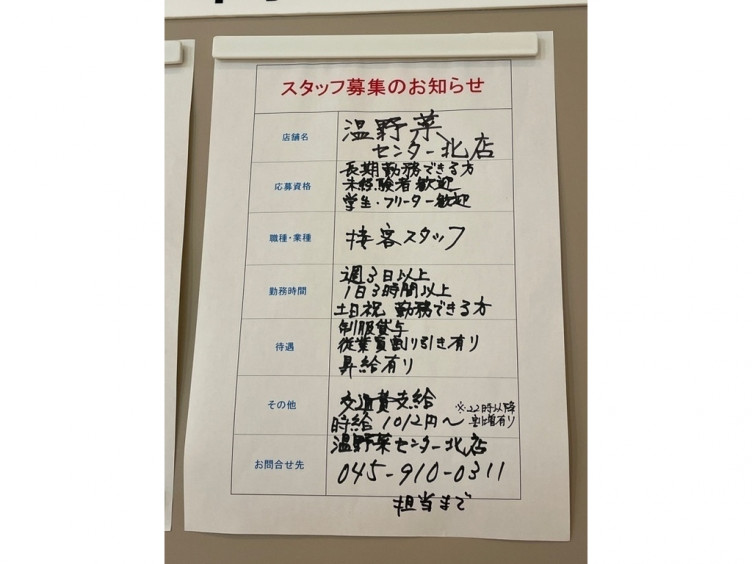 スタッフ募集のお知らせ
店舗名
温野菜
センター北店
応募資格
長期勤務できる方
未経験者歓迎
学生・フリーター歓迎
職種・業種
接客スタッフ
勤務時間
週3日以上
1日3時間以上
土日祝 勤務できる方
待遇
制服貸与
従業員割り引き有り
昇給有り
その他
交通費支給
時給 1012円〜
※22時以降
割増有り
お問合せ先
温野菜センター北店
045-910-0311
担当まで